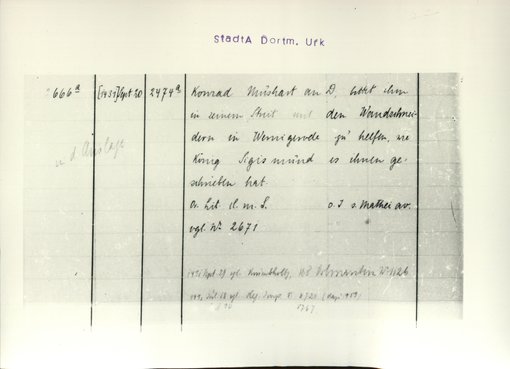 StadtA Dortm. Urk
666a [1431] Sept 20 2474a Konrad Mushart an D. bittet ihm
in seinem Streit mit den Wandschnei-
dern in Wernigerode zu helfen, wie
König Sigismund es ihnen ge-
schrieben hat.
Or. lit. cl m. S. o. J s. Mathei av.
vgl. Nr 2671
n d Auslage
Sept 29 vgl. UB Nr 1126
vgl Reg.